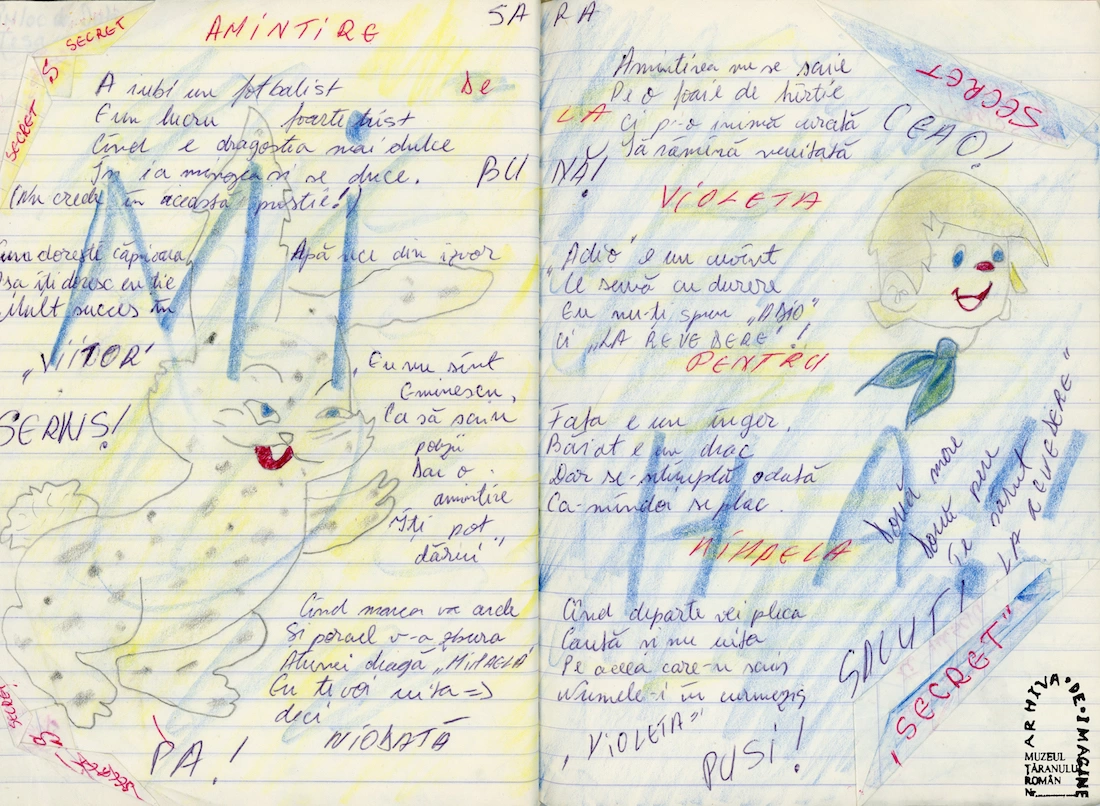 SECRET
S
SECRET
AMINTIRE
De
A iubi un fotbalist
E un lucru foarte trist
Cînd e dragostea mai dulce
Îşi ia mingea şi se duce.
(Nu crede în această prostie!)
BU
doreşte căprioara
Aşa îţi doresc eu ţie
Mult succes în
„VIITOR"
SERVUS!
Apă rece din izvor
„Eu nu sînt
Eminescu,
Ca să scriu
poezii
Dar o
amintire
Îţi pot
dărui"
Cînd marea va arde
Şi porcul v-a zbura
Atunci dragă „MIHAELA"
Eu te voi uita =>
deci
NIODATĂ
PA!
SECRET
S
SECRET
MI
SA RA
Amintirea nu se scrie
Pe o foaie de hîrtie
LA
Ci p-o inimă curată
Să rămînă neuitată
NĂ!
CEAO!
SECRET
VIOLETA
„Adio" e un cuvînt
Ce sună cu durere
Eu nu-ţi spun „ADIO"
Ci „LA REVEDERE"!
PENTRU
Fata e un înger,
Băiat e un drac
Dar se-ntîmplă odată
Ca-mîndoi se plac.
MIHAELA
Cînd departe vei pleca
Caută şi nu uita
Pe aceea care-şi scris
Numele-i în curmeziş
„VIOLETA"
PUSI!
Două mere
Două pere
Te sărut
LA REVEDERE"
SALUT!
„SECRET"
HA!!
ARHIVA DE IMAGINE
MUZEUL
ŢĂRANULUI
ROMÂN
Nr.